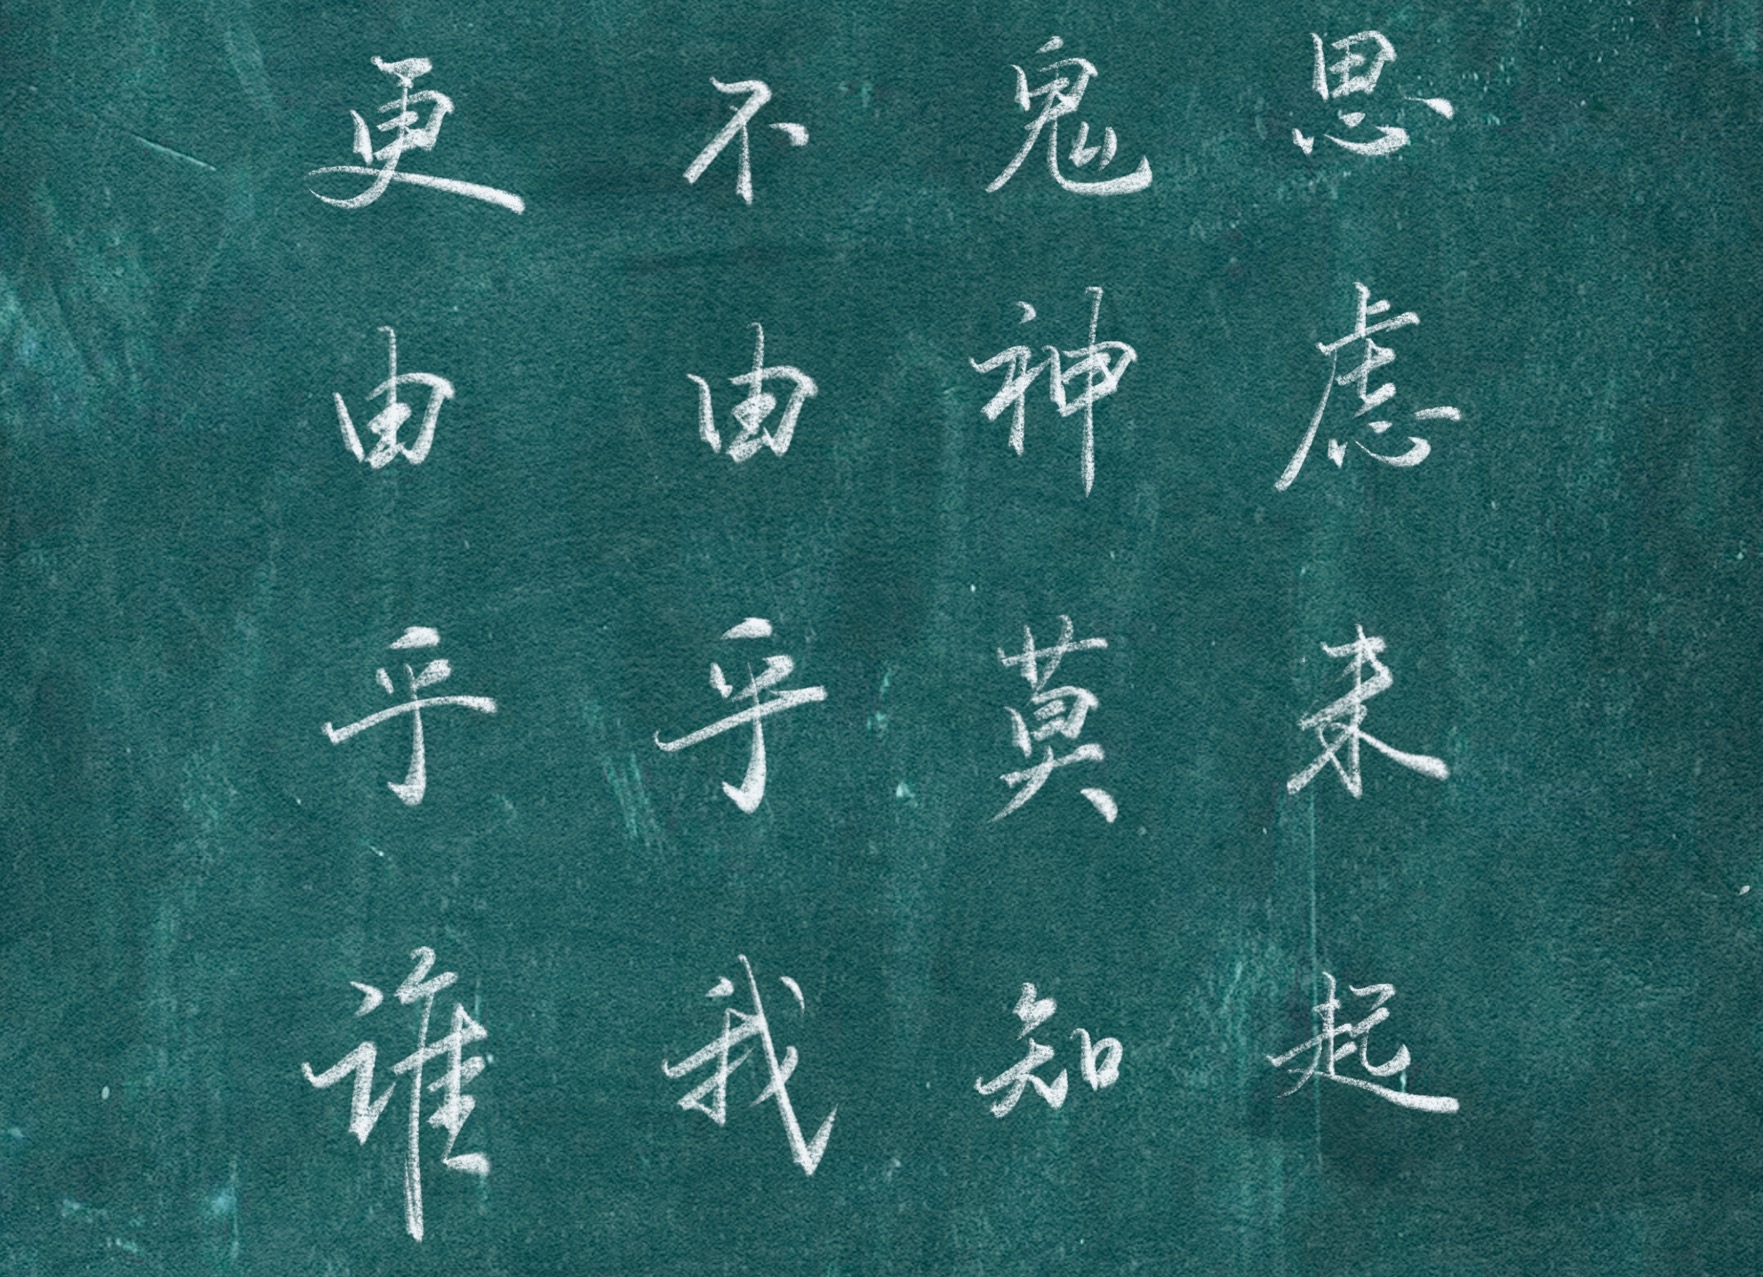 思慮未起
鬼神莫知
不由乎我
更由乎誰